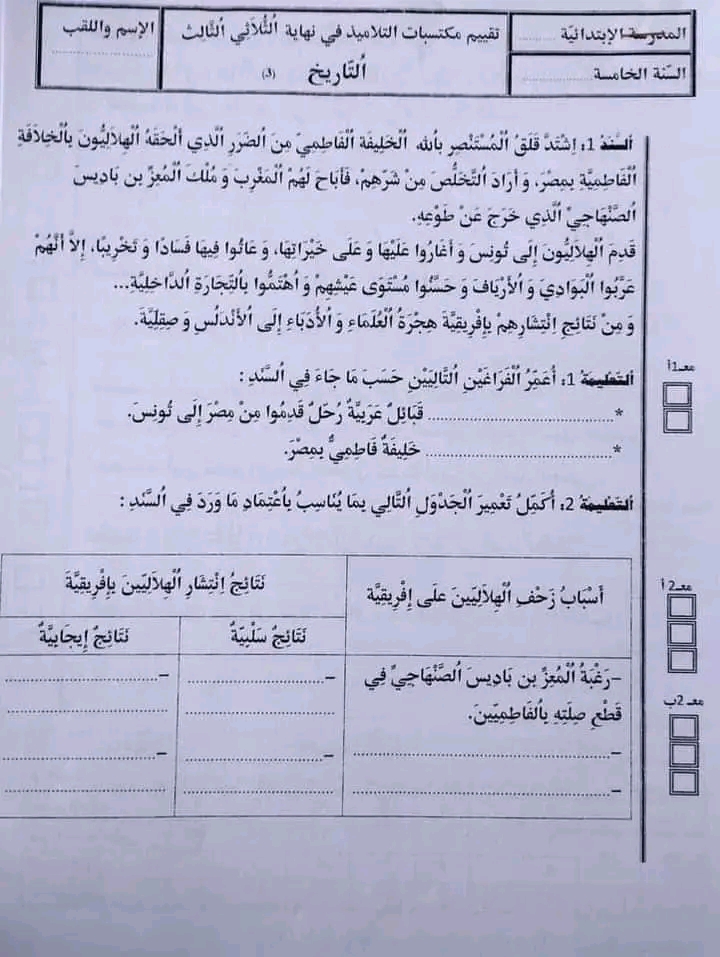 المدرسة الإبتدائيّة ............
السّنة الخامسة ............
تقييم مكتسبات التلاميذ في نهاية اُلثُّلاَثي اُلثَّالِث
اُلتَّارِيخ (3)
الإسم واللقب
............
اُلسَّنَدُ 1: اِشْتَدَّ قَلَقُ اُلْمُسْتَنْصِرِ بِاُلله اُلْخَلِيفَةِ اُلْفَاطِمِيِّ مِنَ اُلضَّرَرِ اُلَّذِي أَلْحَقَهُ اُلْهِلاَلِيُّونَ بِاُلْخِلاَفَةِ
اُلْفَاطِمِيَّةِ بِمِصْرَ، وَ أَرَادَ اُلتَّخَلُّصَ مِنْ شَرِّهِمْ، فَأَبَاحَ لَهُمْ اُلْمَغْرِبَ وَ مُلْكَ اُلْمُعِزِّ بن بَادِيسَ
اُلصَّنْهَاجِيِّ اُلَّذِي خَرَجَ عَنْ طَوْعِهِ.
قَدِمَ اُلْهِلاَلِيُّونَ إِلَى تُونِسَ وَ أَغَارُوا عَلَيْهَا وَ عَلَى خَيْرَاتِهَا، وَ عَاثُوا فِيهَا فَسَادًا وَ تَخْرِيبًا، إِلاَّ أَنَّهُمْ
عَرَّبُوا اُلْبَوَادِيَ وَ اُلأَرْيَافَ وَ حَسَّنُوا مُسْتَوَى عَيْشِهِمْ وَ اُهْتَمُّوا بِاُلتِّجَارَةِ اُلدَّاخِلِيَّةِ...
وَ مِنْ نَتَائِجِ اِنْتِشَارِهِمْ بِإِفْرِيقِيَّةَ هِجْرَةُ اُلْعُلَمَاءِ وَ اُلأُدَبَاءِ إِلَى اُلأَنْدَلُسِ وَ صِقِلِيَّةَ.
معـ1أ
اُلتَّعْلِيمَةُ 1: أُعَمِّرُ اُلْفَرَاغَيْنِ اُلتَّالِيَيْنِ حَسَبَ مَا جَاءَ فِي اُلسَّنَدِ :
*............ قَبَائِلُ عَرَبِيَّةٌ رُحَّلٌ قَدِمُوا مِنْ مِصْرَ إِلَى تُونِسَ.
*............ خَلِيفَةٌ فَاطِمِيٌّ بِمِصْرَ.
اُلتَّعْلِيمَةُ 2: أُكَمِّلُ تَعْمِيرَ اُلْجَدْوَلِ اُلتَّالِي بِمَا يُنَاسِبُ بِاُعْتِمَادِ مَا وَرَدَ فِي اُلسَّنَدِ :
معـ2 أ
أَسْبَابُ زَحْفِ اُلْهِلاَلِيِّينَ عَلَى إِفْرِيقِيَّةَ
نَتَائِجُ اِنْتِشَارِ اُلْهِلاَلِيِّينَ بِإِفْرِيقِيَّةَ
نَتَائِجُ سَلْبِيَّةٌ
نَتَائِجُ إِيجَابِيَّةٌ
معـ 2ب
–رَغْبَةُ اُلْمُعِزِّ بن بَادِيسَ اُلصَّنْهَاجِيِّ فِي
قَطْعِ صِلَتِهِ بِاُلْفَاطِمِيِّينَ.
–............
–............
–............
............
–............
............
–............
............
–............
............